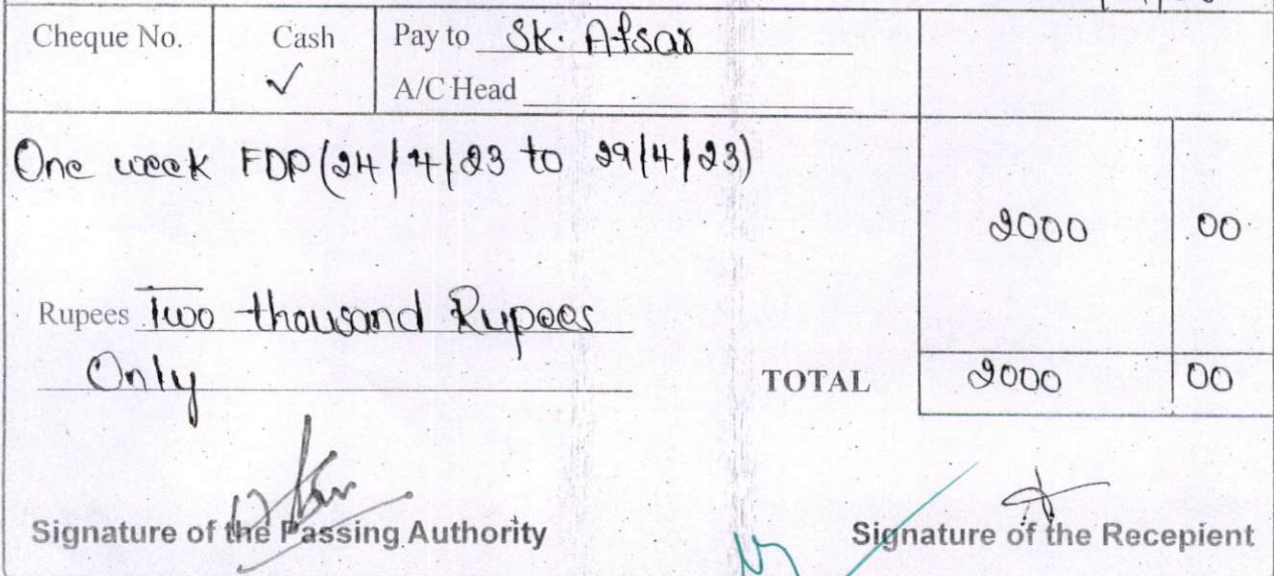 Cheque No. Cash Pay to Sk. Afsar
✓ A/C Head
One week FDP (24/4/23 to 29/4/23)
2000 00
Rupees Two thousand Rupees
Only TOTAL 2000 00
Signature of the Passing Authority Signature of the Recepient